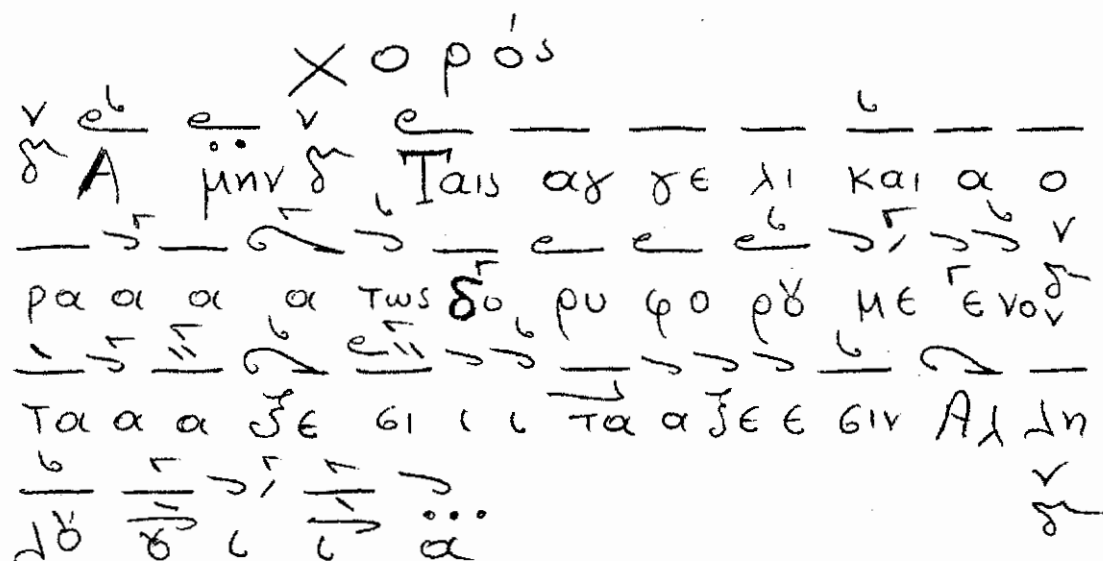 Χορός
Α μην Ταις αγ γε λι και α ο
ρα α α α τως δο ρυ φο ρȣ με ε νον
τα α α α ξε σι ι ι τα α ξε ε σιν Αλ λη
λȣ ȣ ι ι α